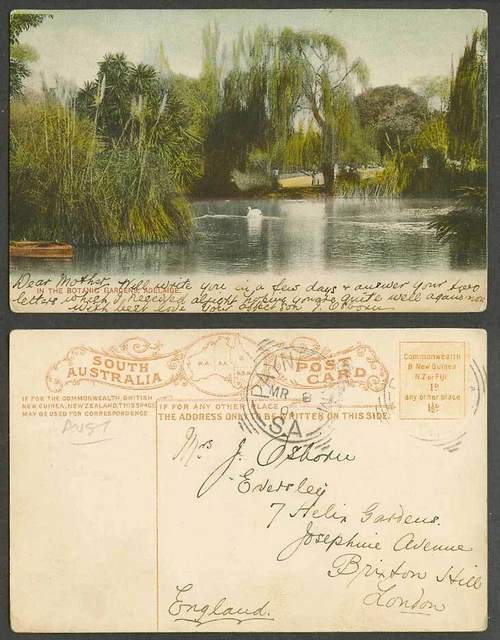 IN THE BOTANIC GARDENS, ADELAIDE.
Dear Mother. Will write you in a few days & answer your two
letters which I received alright hoping you are quite well again now
with best love your affect son J. Osborn
SOUTH
AUSTRALIA
W.A. S.A.
N.S.W
POST
CARD
IF FOR THE COMMONWEALTH, BRITISH
NEW GUINEA, NEW ZEALAND, THIS SPACE
MAY BE USED FOR CORRESPONDENCE
IF FOR ANY OTHER PLACE
THE ADDRESS ONLY TO BE WRITTEN ON THIS SIDE.
Commonwealth
B New Guinea
N.Z or Fiji
1D
any other place
1½D
MR 8
S.A
AUST
Mrs J. Osborn
Eversley
7 Helix Gardens.
Josephine Avenue
Brixton Hill
London
England.